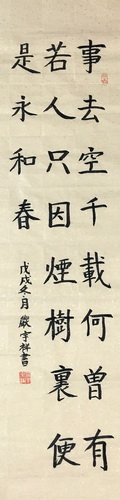 事去空千載何曾有
若人只因煙樹裏便
是永和春
戊戌冬月嚴宇祥書